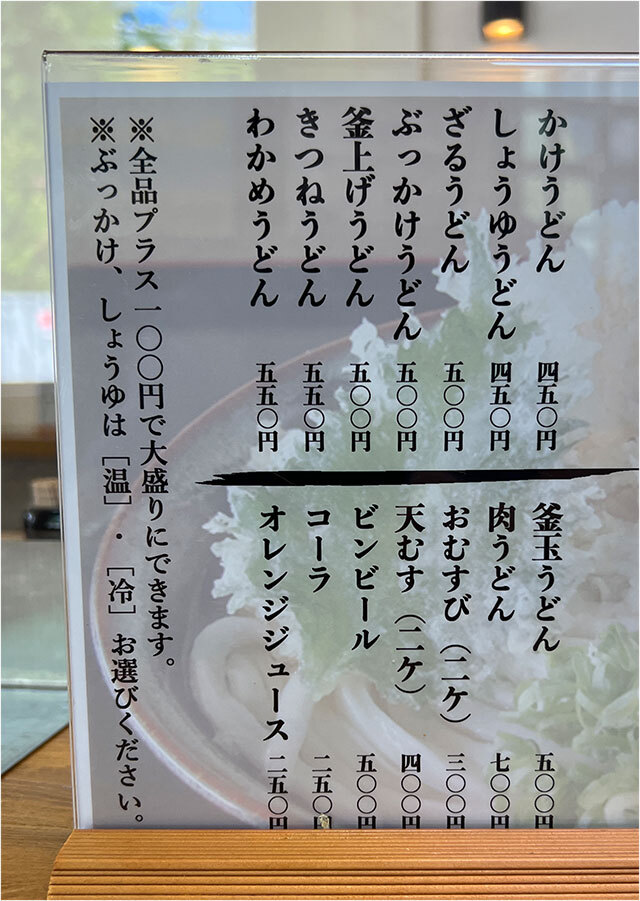 かけうどん 四五〇円
しょうゆうどん 四五〇円
ざるうどん 五〇〇円
ぶっかけうどん 五〇〇円
釜上げうどん 五〇〇円
きつねうどん 五五〇円
わかめうどん 五五〇円
釜玉うどん 五〇〇円
肉うどん 七〇〇円
おむすび（二ケ） 三〇〇円
天むす（二ケ） 四〇〇円
ビンビール 五〇〇円
コーラ 二五〇円
オレンジジュース 二五〇円
※全品プラス一〇〇円で大盛りにできます。
※ぶっかけ、しょうゆは［温］・［冷］お選びください。